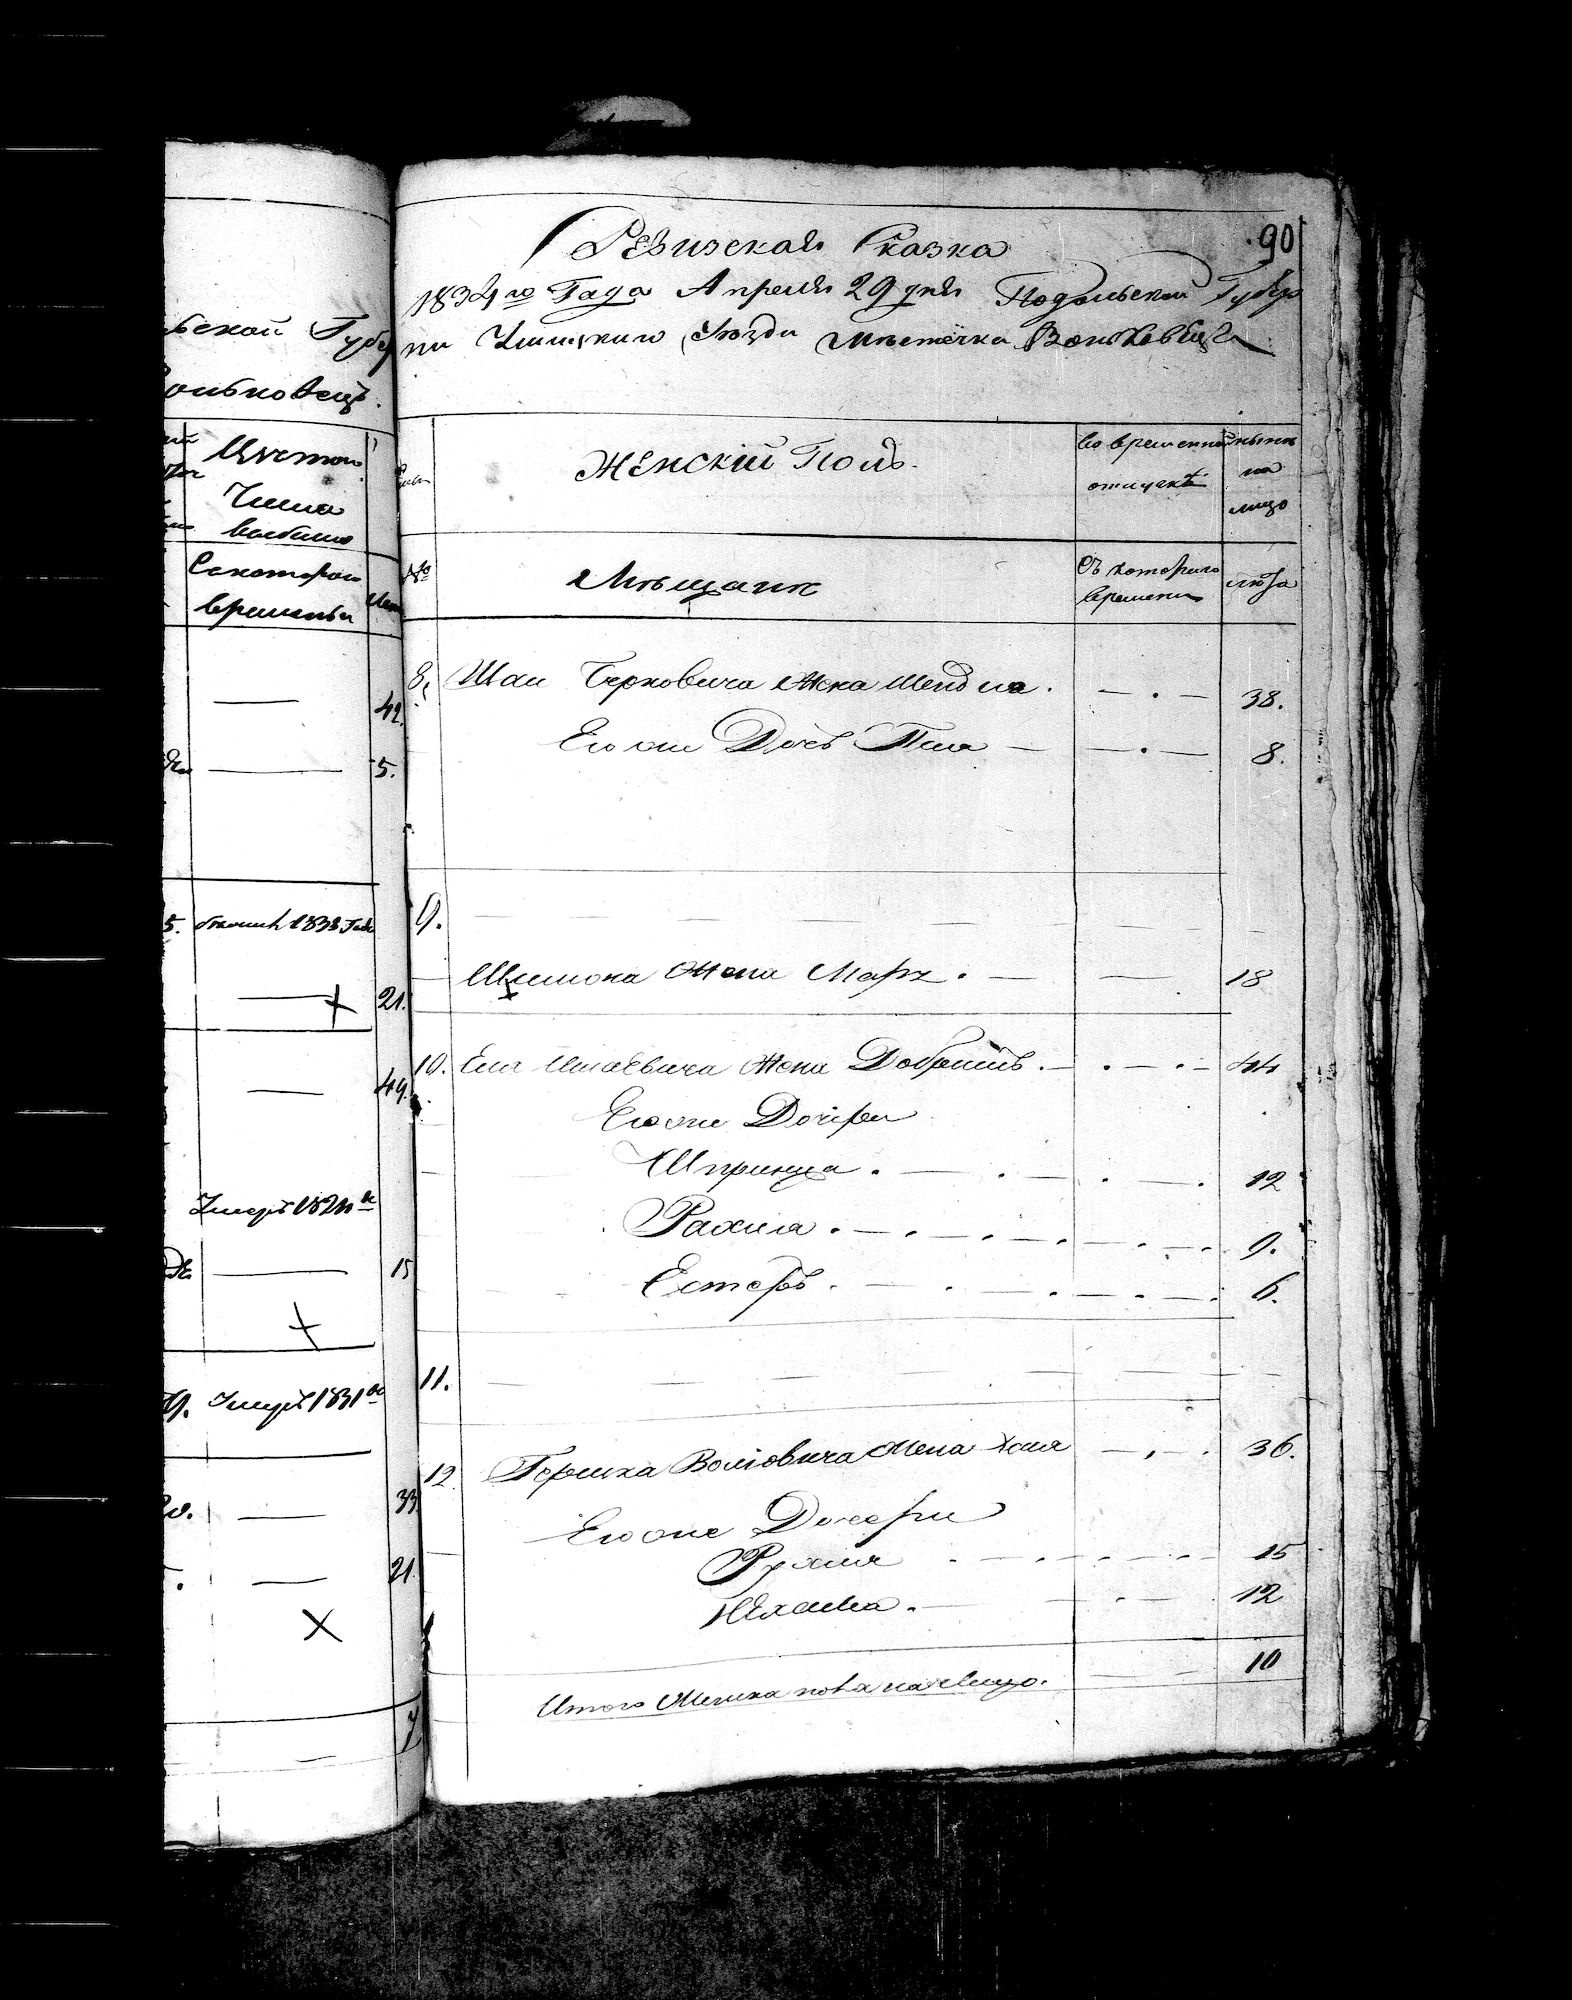 ьской Губер
оньковецъ.
Изъ того
числа
выбыло
Съ котораго
времени
лета
42.
5.
5. 1833 года
21.
49.
Умеръ 1824го
15
9. Умеръ 1831го
33
21
7
90
Ревизская Сказка
1834го Года Апреля 29 дня Подольской Губер
ни Ушицкаго Уезда Местечка Воньковецъ
Женскій Полъ.
во временной
отлучкѣ
ныне
на
лицо
№ Мещане
Съ котораго
времени
лета
8. Шаи Берковича Жена Шендла. — . — 38.
Его же Дочь — — . — 8.
9. — — — — — —
Шимона Жена . — — 18
10. Ели Жена Добришъ. — . — . — 44
Его же Дочери
Шпринца . — . — . — . 12
Рахиля . — . — . — . — . — . 9.
Естеръ . — . — . — . — . 6.
11. — — — — — —
12 Гершка Волковича Жена Хая — . — . 36.
Его же Дочери
Рухля . — . — . — . — 15
. — — . — 12
Итого Женска пола на лицо. — — 10